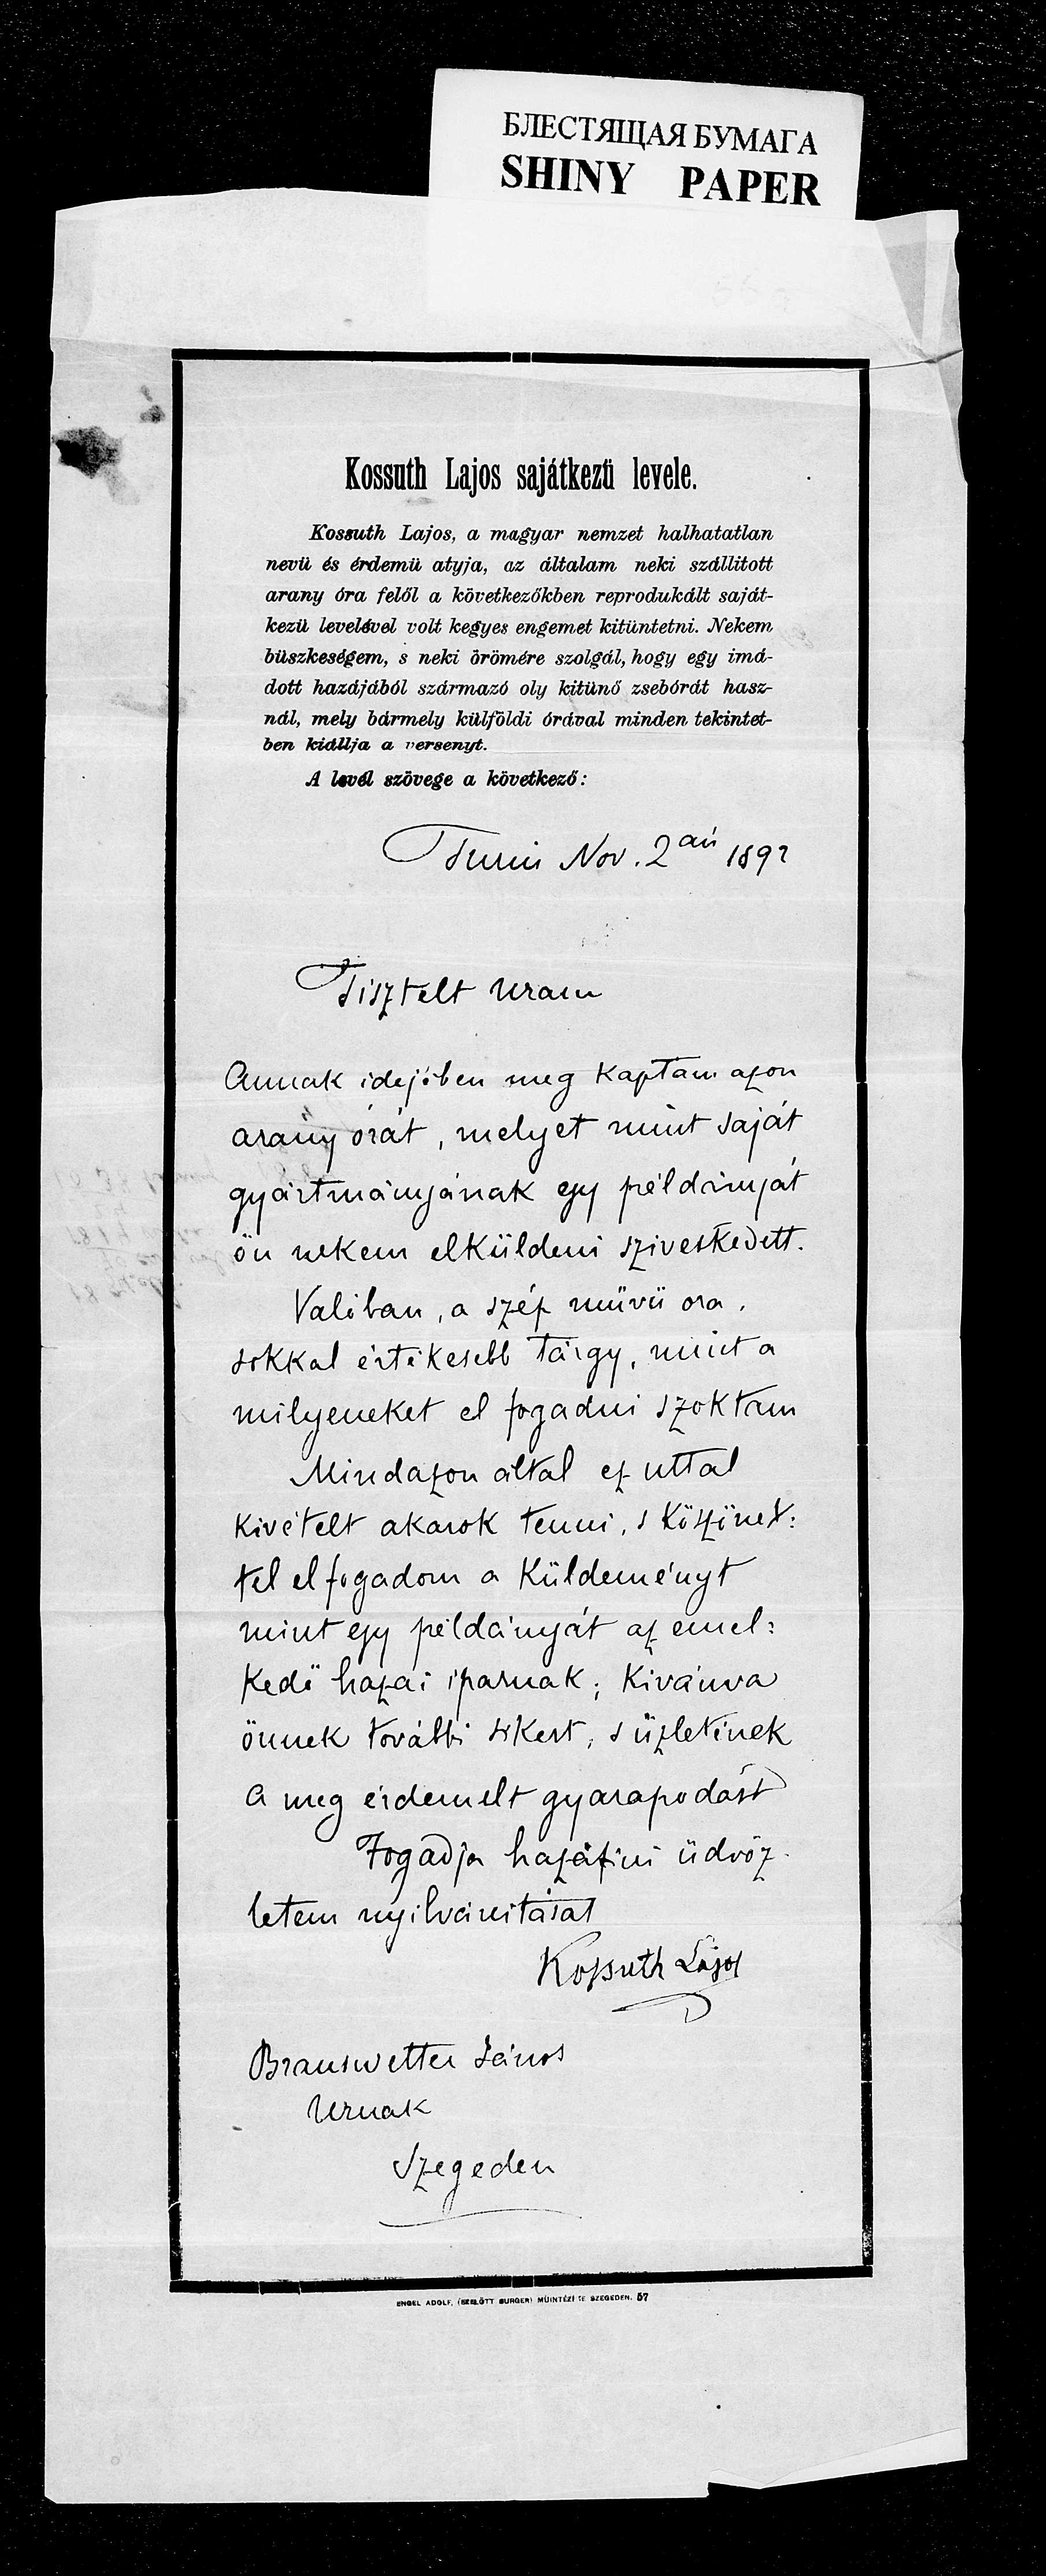 БЛЕСТЯЩАЯ БУМАГА
SHINY PAPER
Kossuth Lajos sajátkezü levele.
Kossuth Lajos, a magyar nemzet halhatatlan
nevü és érdemü atyja, az általam neki szállitott
arany óra felől a következőkben reprodukált saját-
kezü levelével volt kegyes engemet kitüntetni. Nekem
büszkeségem, s neki örömére szolgál, hogy egy imá-
dott hazájából származó oly kitünő zsebórát hasz-
nál, mely bármely külföldi órával minden tekintet-
ben kiállja a versenyt.
A levél szövege a következő:
Turin Nov. 2án 1892
Tisztelt Uram
Annak idejében meg kaptam azon
arany órát, melyet mint saját
gyártmányának egy példányját
ön nekem elküldeni sziveskedett.
Valóban, a szép müvü ora,
sokkal értékesebb tárgy, mint a
milyeneket el fogadni szoktam
Mindazon által ez uttal
kivételt akarok tenni, s köszönet:
tel el fogadom a küldeményt
mint egy példányát az emel:
kedő hazai iparnak; kivánva
önnek további sikert, s üzletének
a meg érdemelt gyarapodást
Fogadja hazafiui üdvöz-
letem nyilvánitását
Kossuth Lajos
Brauswetter János
Urnak
Szegeden
ENGEL ADOLF, (EZELŐTT BURGER) MÜINTÉZETE SZEGEDEN. 57